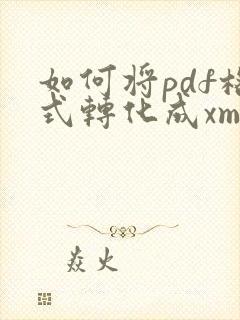 如何将pdf格
式轉化成xm
焱火